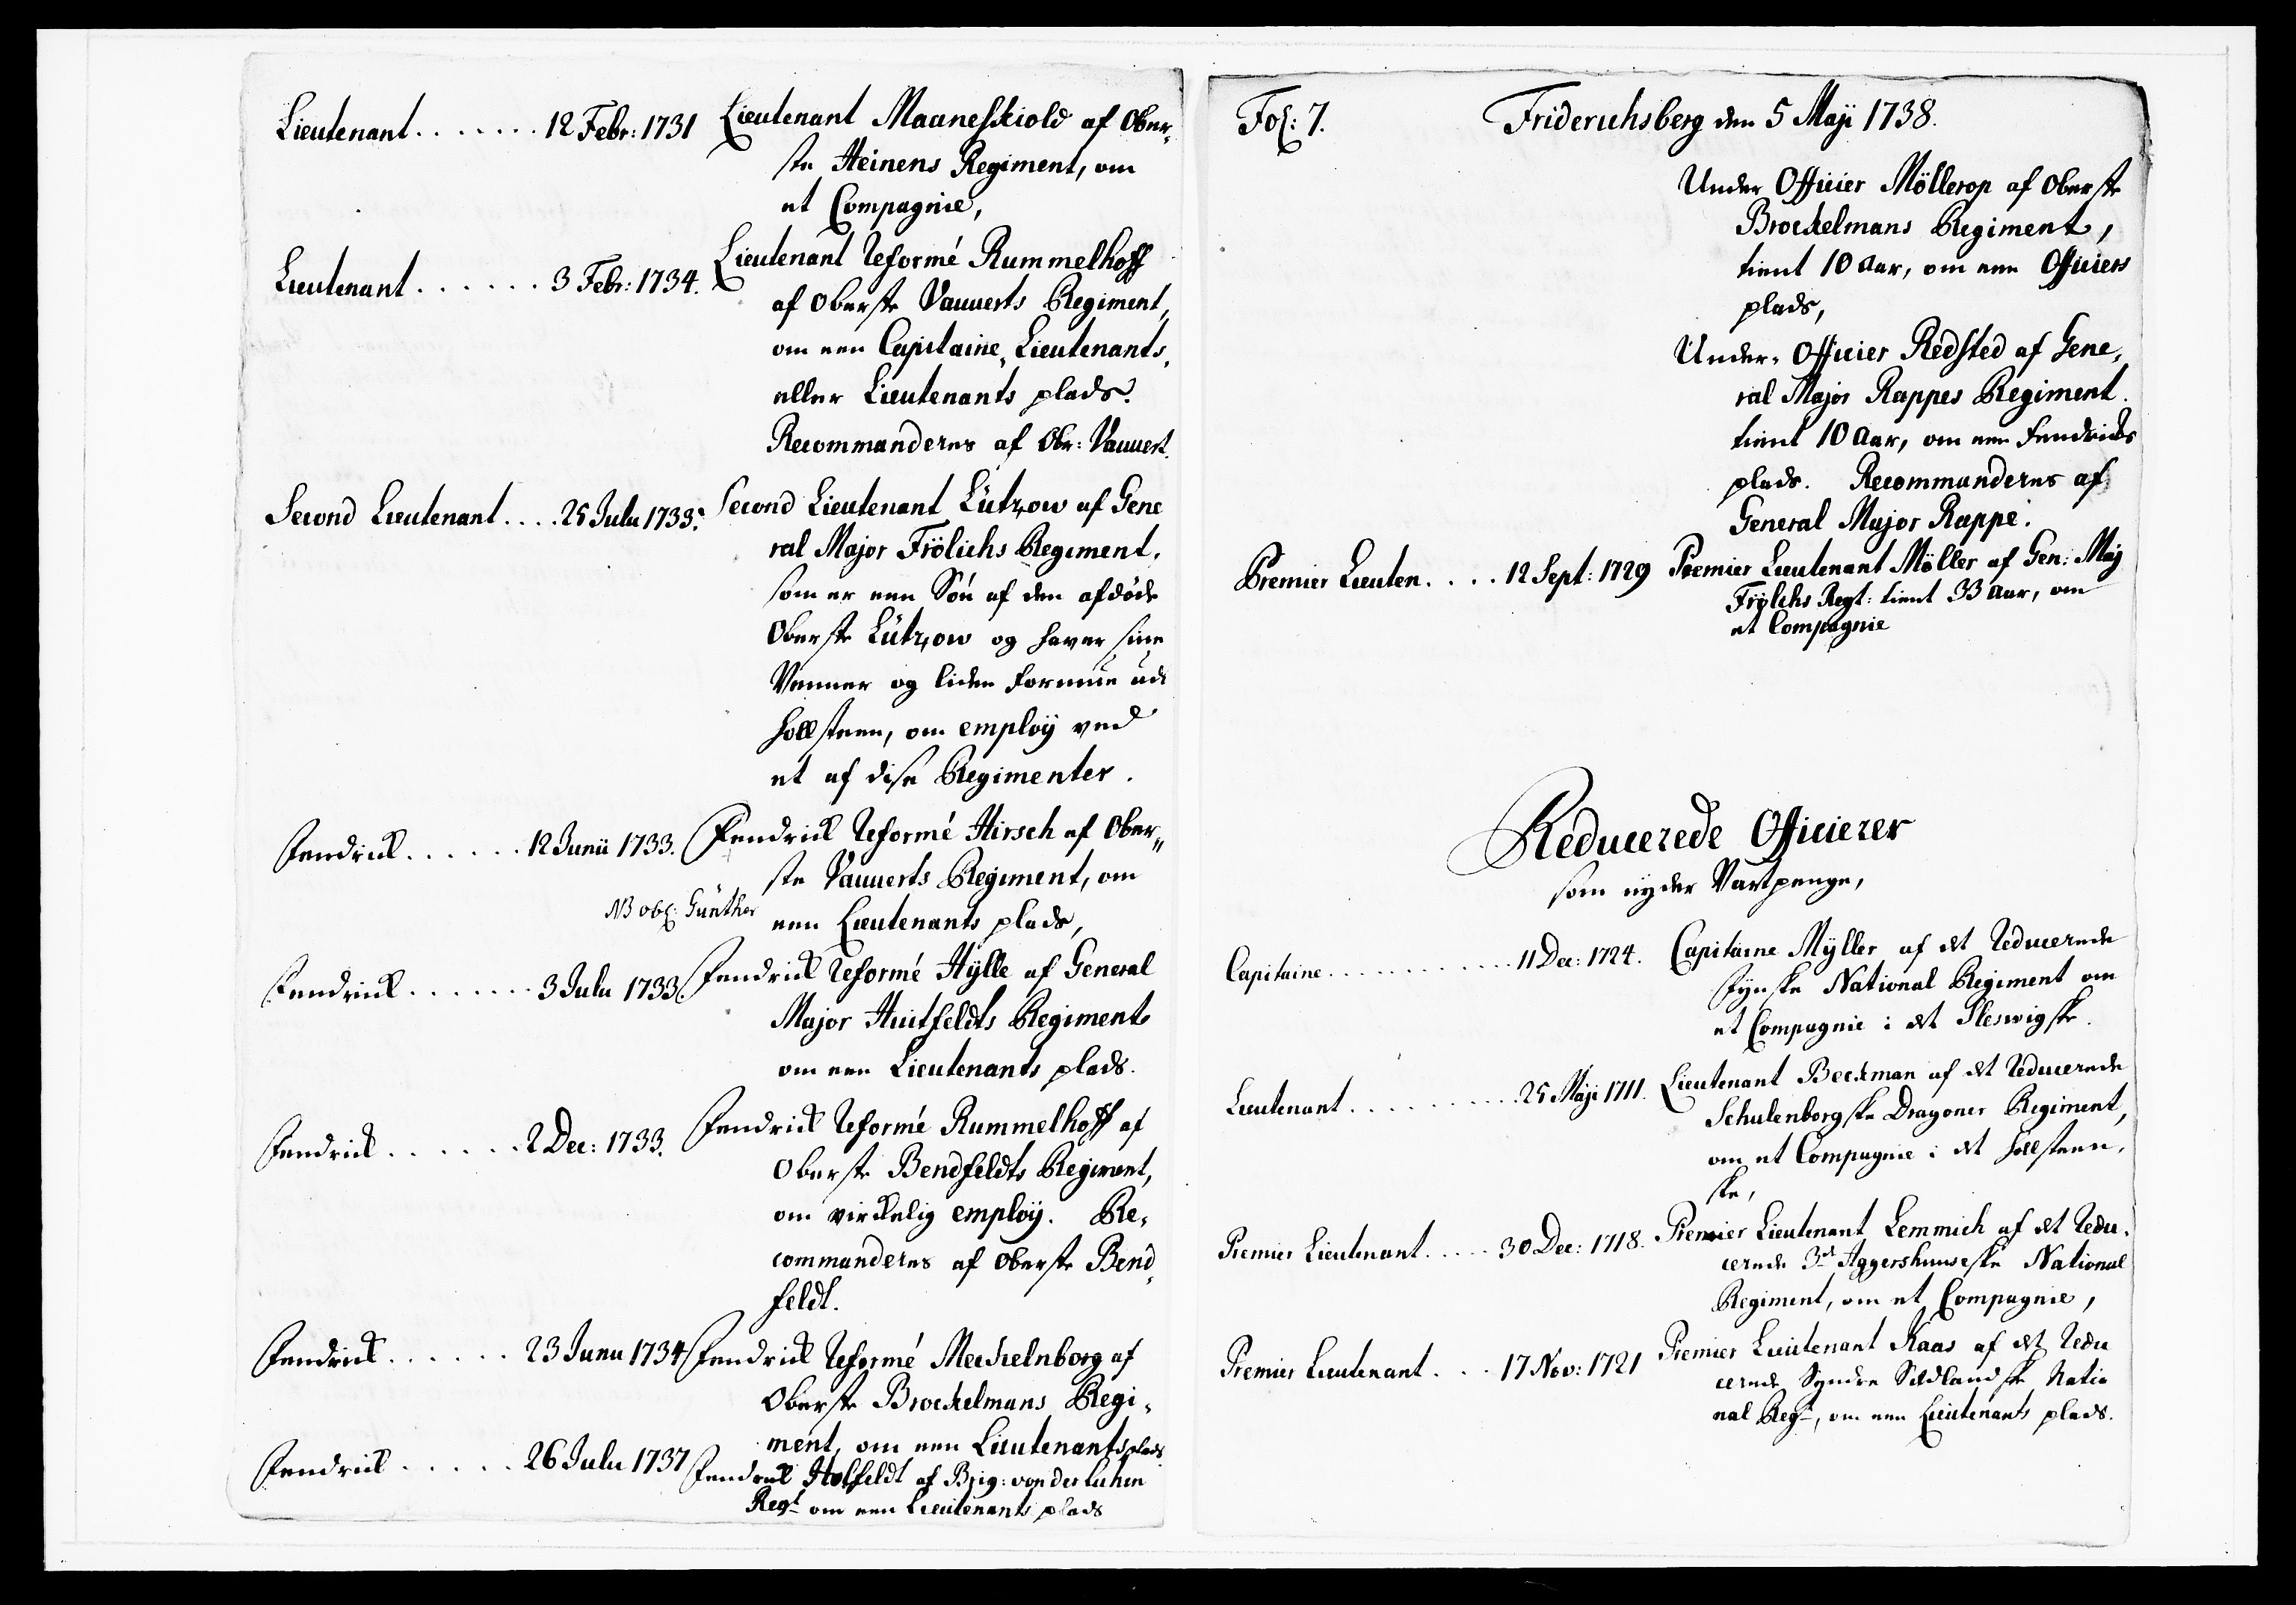 Lieutenant . . . . . . . 12 Febr: 1731 Lieutenant Maaneskiold af Ober-
ste Heinens Regiment, om
et Compagnie,
Lieutenant . . . . . . 3 Febr: 1734. Lieutenant Reformé Rummelhoff
af Oberste Vauuerts Regiment,
om een Capitaine, Lieutenants,
eller Lieutenants plads.
Recommanderes af Obr: Vauuert.
Second Lieutenant . . . . 25 Julii 1733. Second Lieutenant Lützow af Gene
ral Major Frölichs Regiment,
som er een Sön af den afdöde
Oberste Lützow og haver sine
Venner og liden formue udi
Hollsteen, om employ ved
et af disse Regimenter.
Fendrick . . . . . . 12 Junii 1733. Fendrick Reformé Hirsch af Ober-
ste Vauuerts Regiment, om
NB obs: Günther
een Lieutenants plads,
Fendrick . . . . . . . 3 Julii 1733. Fendrick Reformé Hÿlle af General
Major Huitfeldts Regiment
om een Lieutenants plads.
Fendrick . . . . . . 2 Dec: 1733. Fendrick Reformé Rummelhoff af
Oberste Bendfeldts Regiment,
om virckelig employ. Re-
commanderes af Oberste Bend-
feldt.
Fendrick . . . . . . 23 Junii 1734 Fendrick Reformé Meckelnborg af
Oberste Brockelmans Regi-
ment, om een Lieutenants plads
Fendrick . . . . . 26 Julii 1737 Fendrick Holfeldt af Brig: von der Luhen
Regt om een Lieutenants plads
Fol: 7. Friderichsberg den 5 Maji 1738.
Under Officier Möllerop af Oberste
Brockelmans Regiment,
tient 10 Aar, om een Officiers
plads,
Under-Officier Redsted af Gene-
ral Major Rappes Regiment.
tient 10 Aar, om een Fendricks
plads. Recommanderes af
General Major Rappe.
Premier Lieuten. . . . 12 Sept: 1729 Premier Lieutenant Möller af Gen: Maj
Frölichs Regt: tient 33 Aar, om
et Compagnie
Reducerede Officierer
som nÿder Vartpenge,
Capitaine . . . . . . . . . . . . 11 Dec: 1724. Capitaine Mÿller af det Reducerede
Fÿnske National Regiment om
et Compagnie i det Sleswigske.
Lieutenant . . . . . . . . . . 25 Maji 1711. Lieutenant Beckman af det Reducerede
Schulenborgske Dragoner Regiment,
om et Compagnie i det Hollsteen-
ske,
Premier Lieutenant . . . . . 30 Dec: 1718. Premier Lieutenant Lemmich af det Redu-
cerede 3de Aggershuuseske National
Regiment, om et Compagnie,
Premier Lieutenant . . . 17 Nov: 1721 Premier Lieutenant Kaas af det Redu
cerede Syndre Siælandske Natio
nal Regt, om een Lieutenants plads.